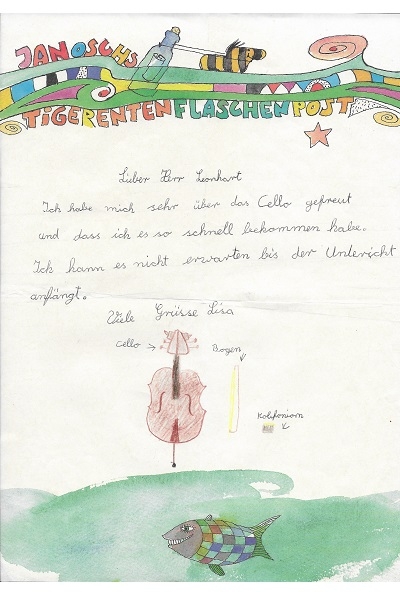 JANOSCHS
TIGERENTENFLASCHENPOST
Lieber Herr Leonhart
Ich habe mich sehr über das Cello gefreut
und dass ich es so schnell bekommen habe.
Ich kann es nicht erwarten bis der Unterricht
anfängt.
Viele Grüsse Lisa
Cello
Bogen
Kolifoniom